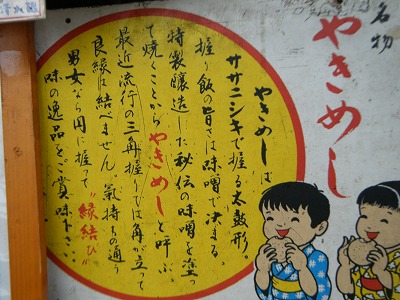 名物
やきめし
やきめしは
ササニシキで握る太鼓形。
握り飯の旨さは味噌で決まる。
特製醸造した秘伝の味噌を塗っ
て焼くことからやきめしと呼ぶ。
最近流行の三角握りでは角が立って
良縁は結べません。気持ちの通う
男女なら円に握って“縁結び”
味の逸品をご賞味下さい。